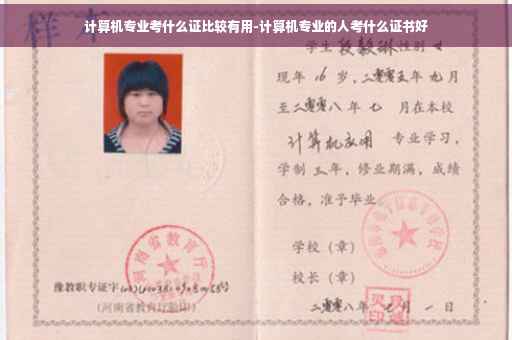 计算机专业考什么证比较有用-计算机专业的人考什么证书好
样本
学生段毅琳性别女
现年16岁，二零零五年九月
至二零零八年七月在本校
计算机应用 专业学习，
学制三年，修业期满，成绩
合格，准予毕业。
学校（章）
校长（章）
二零零八年七月一日
河南省教育厅
豫教职专证字
(河南省教育厅验印)